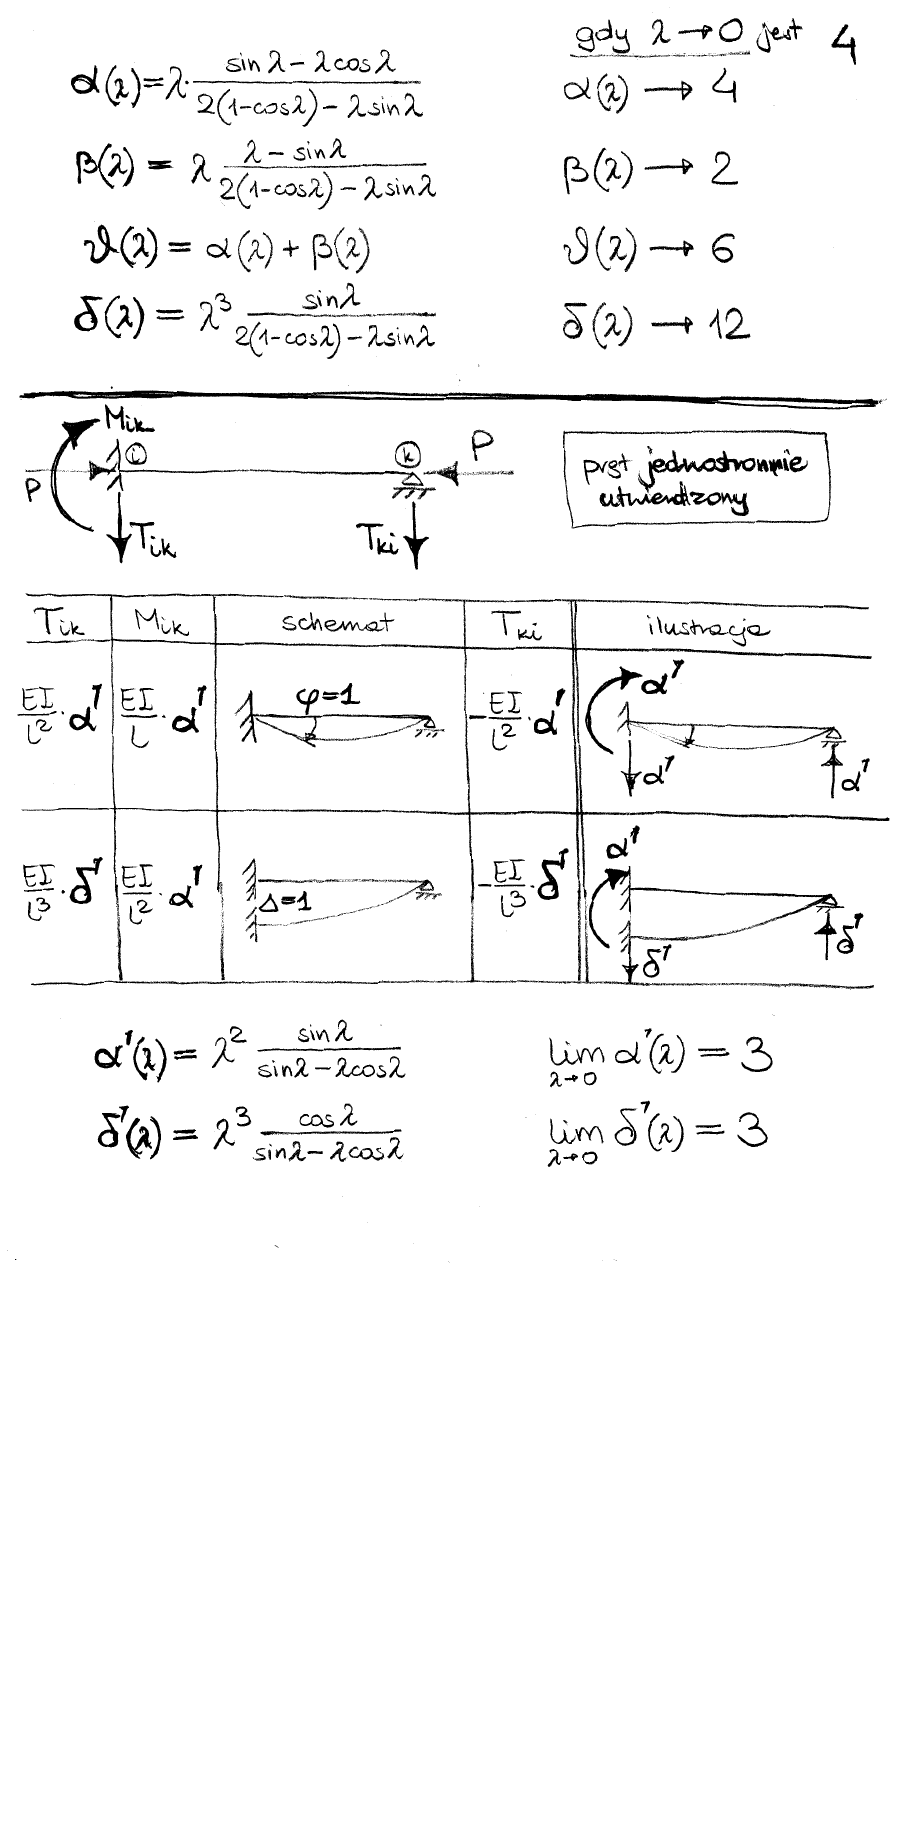 gdy λ → 0 jest 4
α(λ) = λ · (sin λ – λ cos λ) / (2(1–cos λ) – λ sin λ)
α(λ) → 4
β(λ) = λ (λ – sin λ) / (2(1–cos λ) – λ sin λ)
β(λ) → 2
ϑ(λ) = α(λ) + β(λ)
ϑ(λ) → 6
δ(λ) = λ³ sin λ / (2(1–cos λ) – λ sin λ)
δ(λ) → 12
M_ik
i
k
P
P
T_ik
T_ki
pręt jednostronnie
utwierdzony
T_ik M_ik schemat T_ki ilustracja
EI/l² · α' EI/l · α' φ=1 –EI/l² · α' α' α' α'
EI/l³ · δ' EI/l² · α' Δ=1 –EI/l³ · δ' α' δ' δ'
α'(λ) = λ² sin λ / (sin λ – λ cos λ)
lim λ→0 α'(λ) = 3
δ'(λ) = λ³ cos λ / (sin λ – λ cos λ)
lim λ→0 δ'(λ) = 3